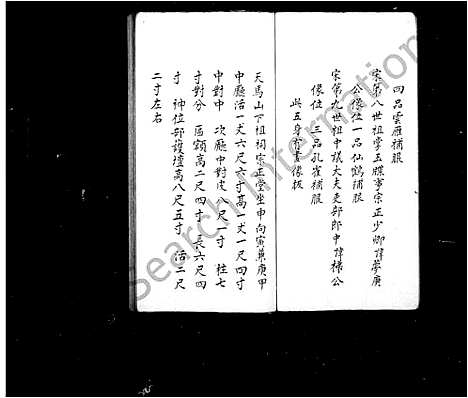 四品雲雁補服
宋第八世祖掌玉牒事宗正少卿諱夢庚
公像位一品仙鶴補服
宋第九世祖中議大夫吏部郎中諱梯公
像位 三品孔雀補服
與五身有書像板
天馬山下祖祠宗正堂坐申向寅兼庚甲
中廳活一丈六尺六寸高一丈一尺四寸
中對中 次廳中對皮八尺一寸 柱七
寸對分 區額高二尺四寸 長六尺四
寸 神位部護壇高八尺五寸 活二尺
二寸左右
Search International